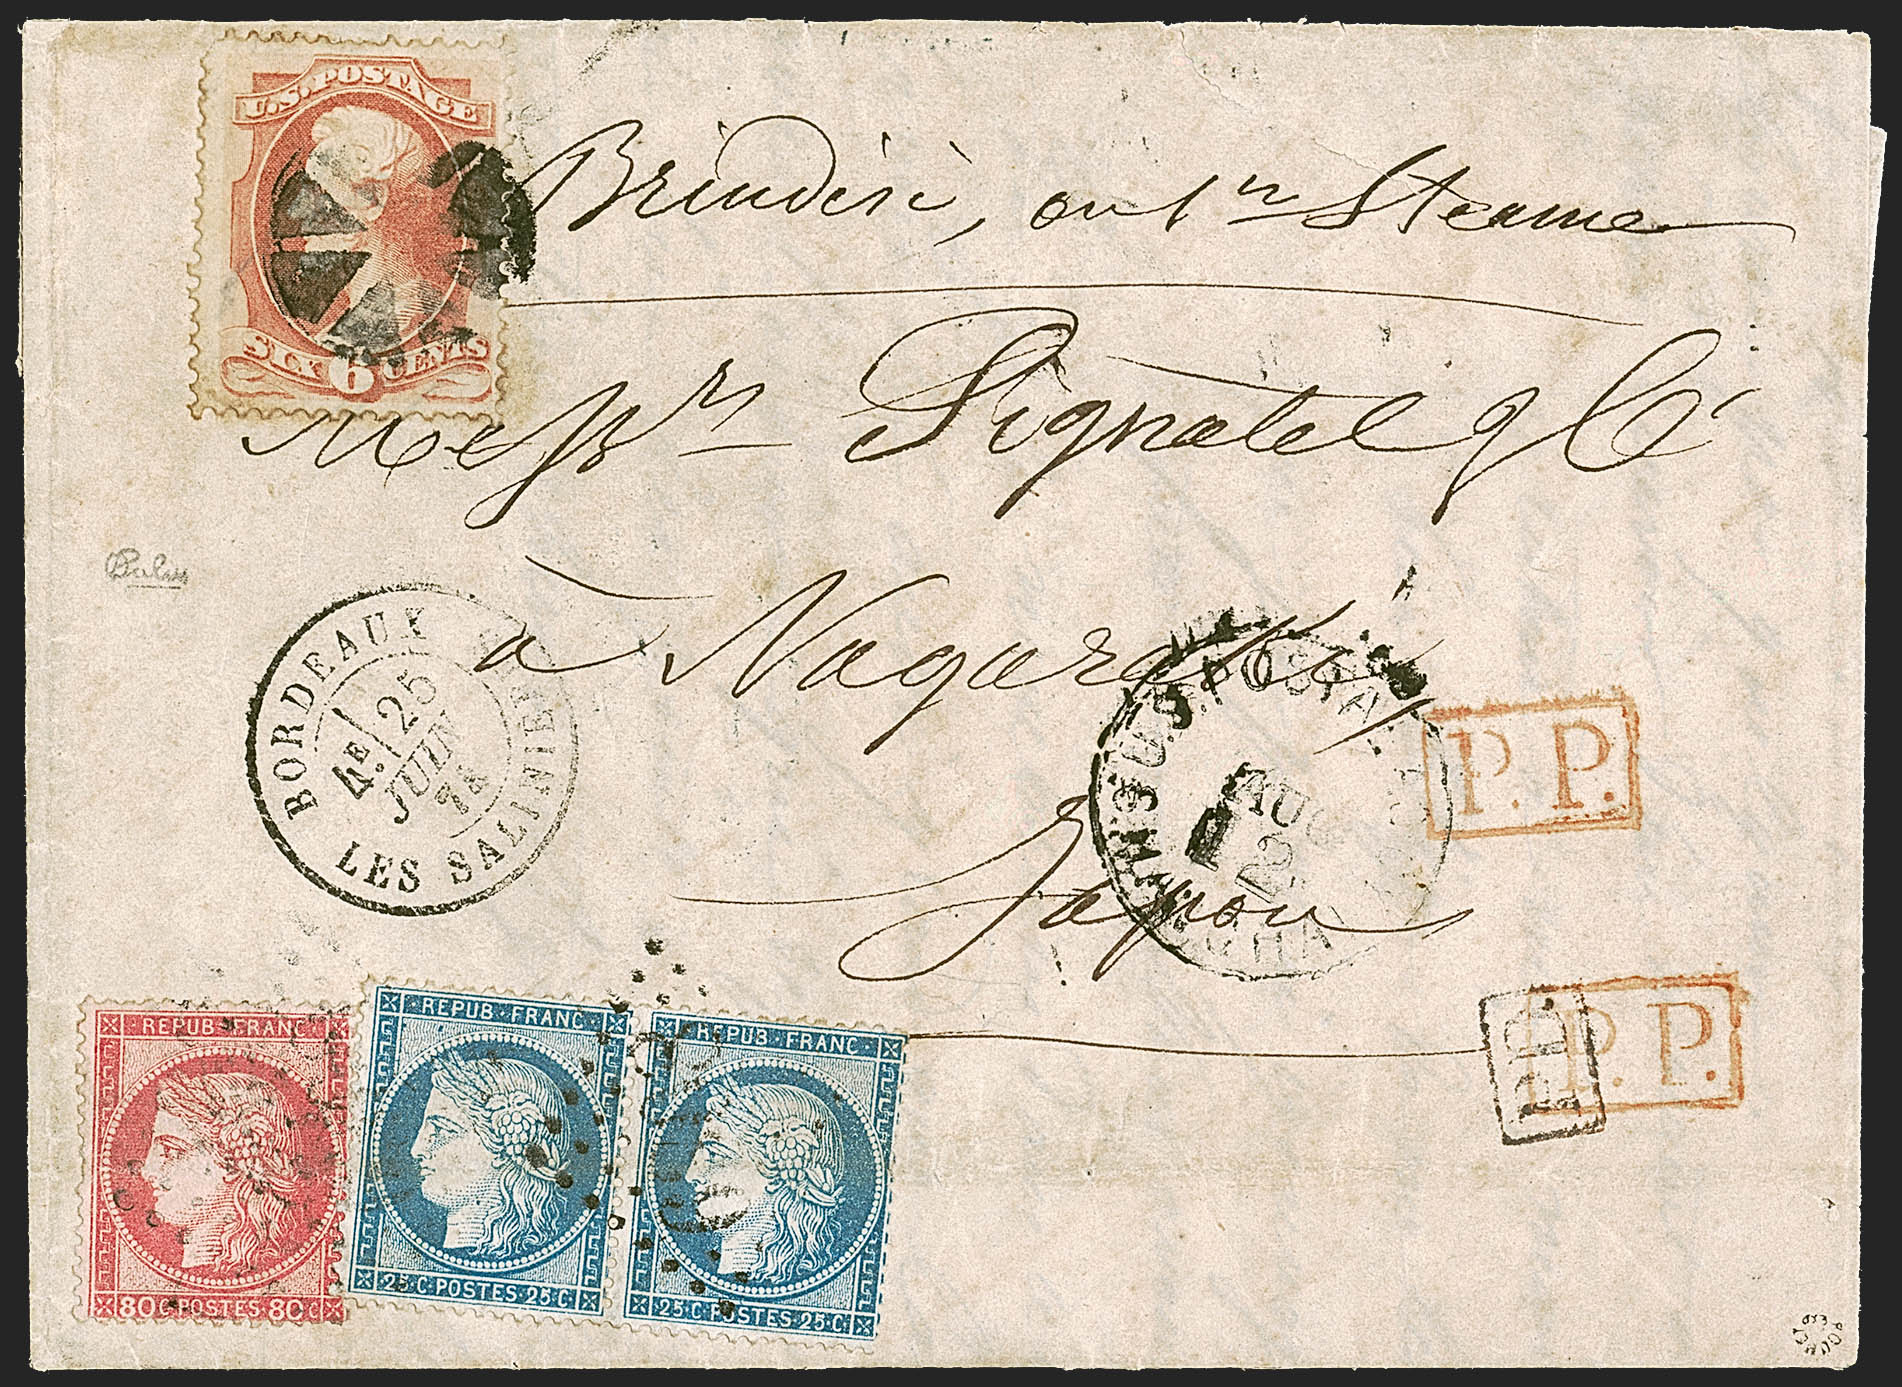 U.S. POSTAGE
SIX 6 CENTS
Brindisi, ou 1er Steame
Messrs Pignatel & Cie
à Nagasaki
Japon
BORDEAUX
4E 25
JUIN
74
LES SALINIE
U.S. POSTAL
AUG
P.P.
P.P.
PD
REPUB FRANC
80 C POSTES 80 C
REPUB FRANC
25 C POSTES 25 C
REPUB FRANC
25 C POSTES 25 C